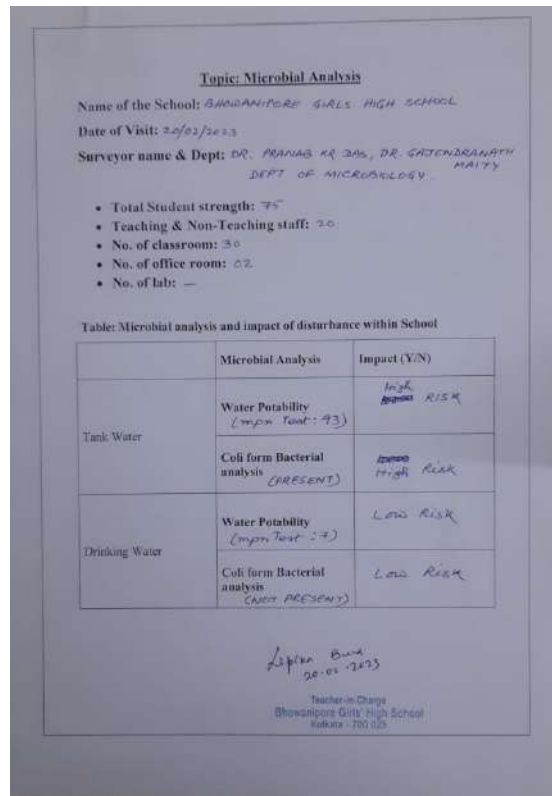 Topic: Microbial Analysis
Name of the School: BHOWANIPORE GIRLS HIGH SCHOOL
Date of Visit: 20/02/2023
Surveyor name & Dept: DR. PRANAB KR DAS, DR. GAJENDRANATH
MAITY
DEPT OF MICROBIOLOGY.
• Total Student strength: 75
• Teaching & Non-Teaching staff: 20
• No. of classroom: 30
• No. of office room: 02
• No. of lab: —
Table: Microbial analysis and impact of disturbance within School
Microbial Analysis Impact (Y/N)
Tank Water
Water Potability
(mpn Test: 93)
High
RISK
Coli form Bacterial
analysis
(PRESENT)
High Risk
Drinking Water
Water Potability
(mpn Test: 7)
Low Risk
Coli form Bacterial
analysis
(NOT PRESENT)
Low Risk
20.02.2023
Teacher-in-Charge
Bhowanipore Girls' High School
Kolkata - 700 025